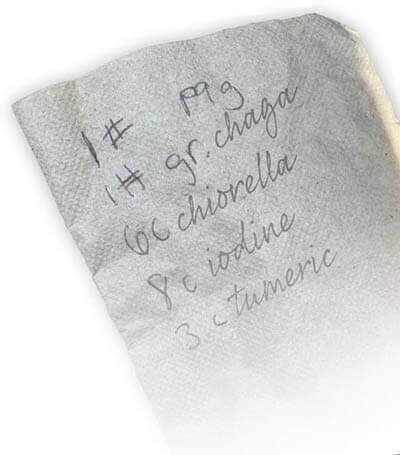 1# Mg
1# gr. chaga
6c chiorella
8 c iodine
3 c tumeric